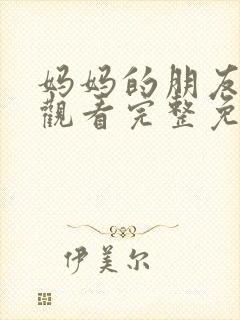 妈妈的朋友
觀看完整免
伊美尔